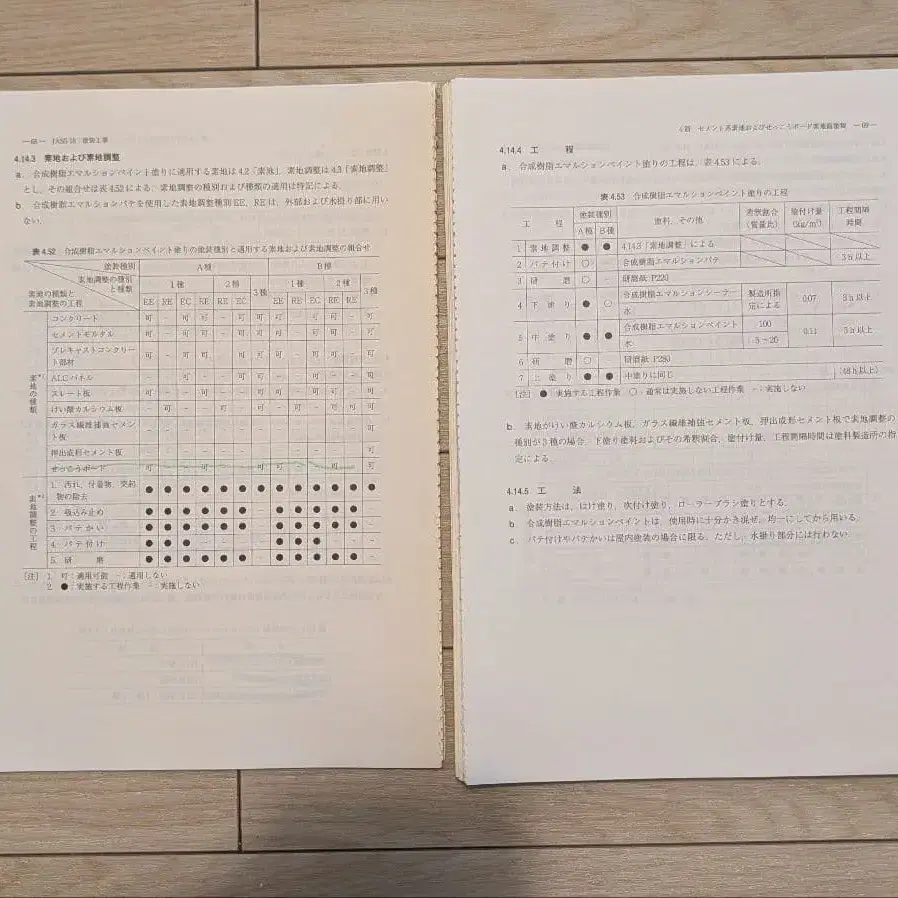 —68— JASS 18 塗装工事
4.14.3 素地および素地調整
a. 合成樹脂エマルションペイント塗りに適用する素地は4.2「素地」,素地調整は4.3「素地調整」
とし,その組合せは表4.52による.素地調整の種別および種類の適用は特記による.
b. 合成樹脂エマルションパテを使用した素地調整種別EE,REは,外部および水掛り部に用い
ない.
表4.52 合成樹脂エマルションペイント塗りの塗装種別と適用する素地および素地調整の組合せ
塗装種別 A種 B種
素地調整の種別と種類 1種 2種 3種 1種 2種 3種
素地の種類と素地調整の工程 EE RE EC RE EC EE RE EC RE
素地の種類
コンクリート
セメントモルタル
プレキャストコンクリート部材
ALCパネル
スレート板
けい酸カルシウム板
ガラス繊維補強セメント板
押出成形セメント板
せっこうボード
素地調整の工程
1. 汚れ,付着物,突起物の除去 ● ● ● ● ● ● ● ● ● ● ● ● ●
2. 吸込み止め
3. パテかい
4. パテ付け
5. 研磨
[注] 1. 可:適用可能 −:適用しない
2. ●:実施する工程作業 −:実施しない
4節 セメント系素地およびせっこうボード素地面塗装 —69—
4.14.4 工程
a. 合成樹脂エマルションペイント塗りの工程は,表4.53による.
表4.53 合成樹脂エマルションペイント塗りの工程
工程 塗装種別 A種 B種 塗料,その他 希釈割合(質量比) 塗付け量(kg/m²) 工程間隔時間
1 素地調整 ● ● 4.14.3「素地調整」による
2 パテ付け ○ 合成樹脂エマルションパテ 3h以上
3 研磨 ○ 研磨紙P220
4 下塗り ● ○ 合成樹脂エマルションシーラー 水 製造所指定による 0.07 3h以上
5 中塗り ● ● 合成樹脂エマルションペイント 水 100 5~20 0.11 5h以上
6 研磨 ○ 研磨紙
7 上塗り ● ● 中塗りに同じ (48h以上)
[注] ●:実施する工程作業 ○:通常は実施しない工程作業 −:実施しない
b. 素地がけい酸カルシウム板,ガラス繊維補強セメント板,押出成形セメント板で素地調整の
種別が3種の場合,下塗り塗料およびその希釈割合,塗付け量,工程間隔時間は塗料製造所の指
定による.
4.14.5 工法
a. 塗装方法は,はけ塗り,吹付け塗り,ローラーブラシ塗りとする.
b. 合成樹脂エマルションペイントは,使用時に十分かき混ぜ,均一にしてから用いる.
c. パテ付けやパテかいは屋内塗装の場合に限る.ただし,水掛り部分には行わない.